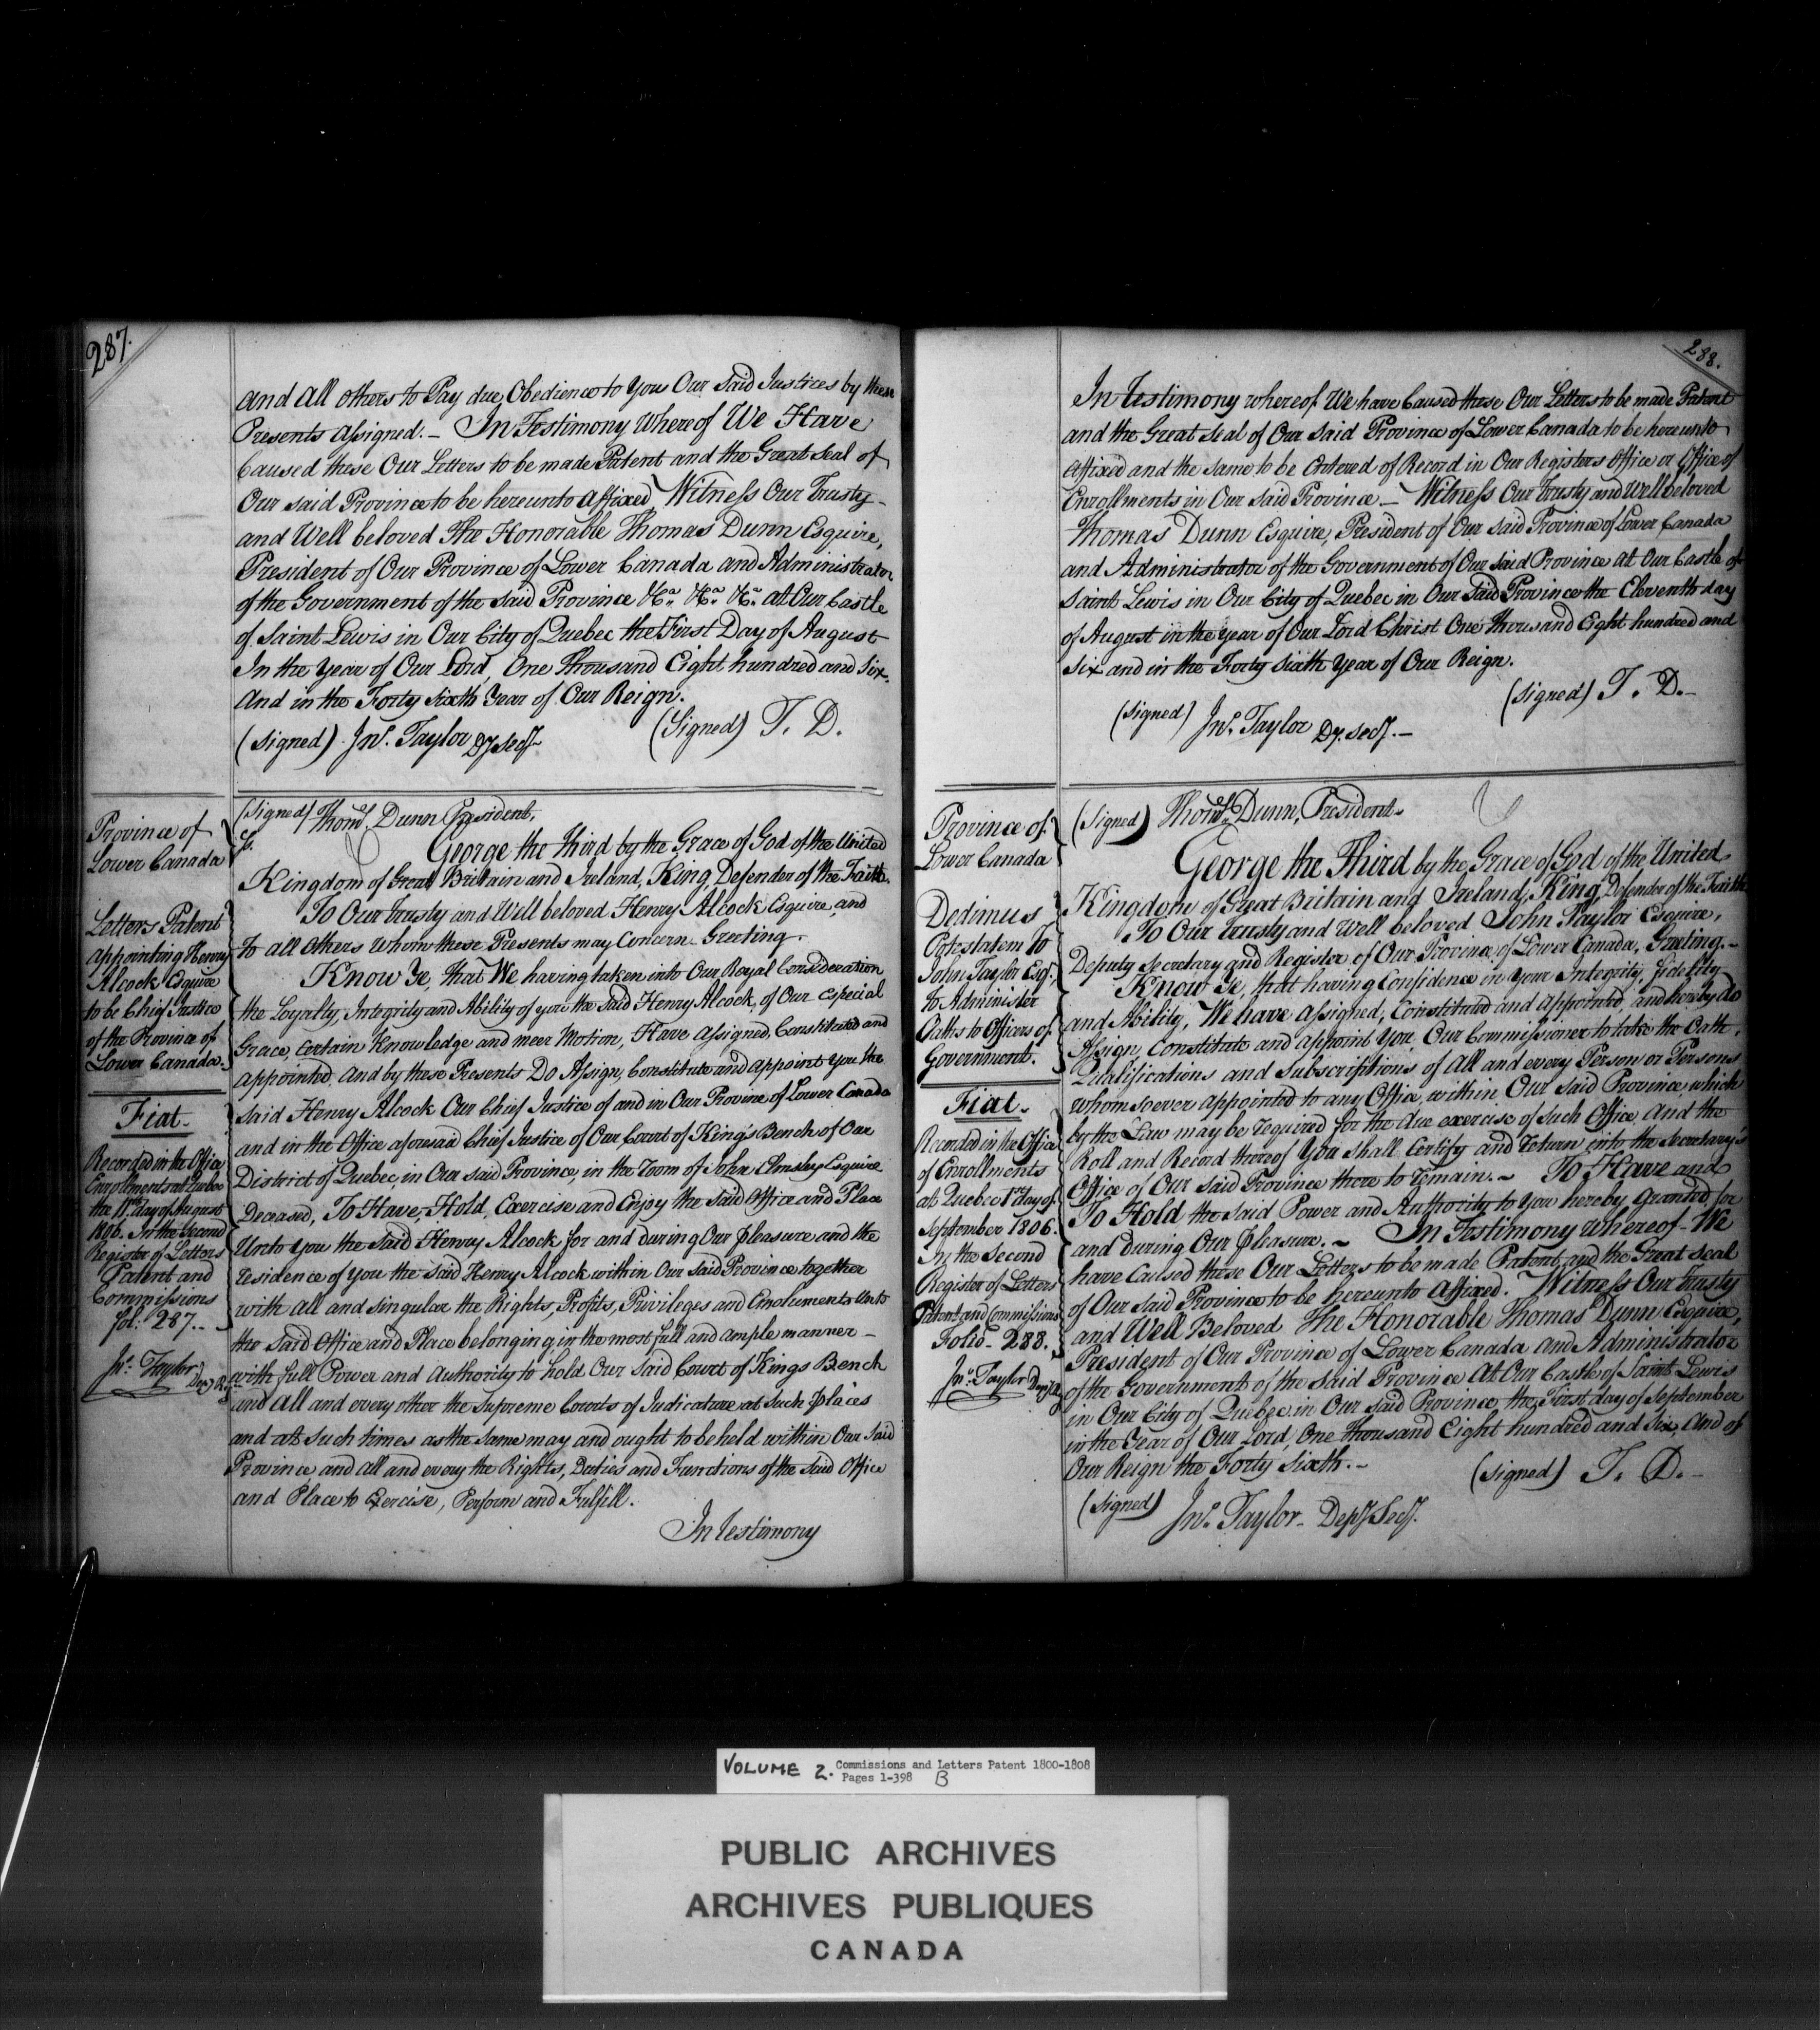 287.
and all others to Pay due Obedience to you Our Said Justices by these
Presents assigned. - In Testimony Whereof We Have
Caused these Our Letters to be made Patent and the Great Seal of
Our said Province to be hereunto affixed Witness Our Trusty
and Well beloved The Honorable Thomas Dunn Esquire,
President of Our Province of Lower Canada and Administrator
of the Government of the said Province &ca. &ca. &ca. at Our Castle
of Saint Lewis in Our City of Quebec the First Day of August
In the year of Our Lord, One Thousand Eight hundred and Six.
And in the Forty Sixth Year of Our Reign.
(Signed) T. D.
(Signed) Jno. Taylor Dy. Secy.
Province of
Lower Canada
Letters Patent
appointing Henry
Alcock Esquire
to be Chief Justice
of the Province of
Lower Canada.
Fiat.
Recorded in the Office
Enrollments at Quebec
the 11th. day of August
1806. In the Second
Register of Letters
Patent and
Commissions
fol: 287.
Jno. Taylor
(Signed) Thos. Dunn President,
George the Third by the Grace of God of the United
Kingdom of Great Britain and Ireland, King, Defender of the Faith.
To Our trusty and Well beloved Henry Alcock Esquire, and
To all others whom these Presents may Concern Greeting.
Know Ye, that We having taken into Our Royal Consideration
the Loyalty, Integrity and Ability of you the Said Henry Alcock, of Our especial
Grace, certain Knowledge and meer Motion, Have assigned, Constituted and
appointed, and by these Presents Do Assign, Constitute and appoint you the
said Henry Alcock Our Chief Justice of and in Our Province of Lower Canada
and in the Office aforesaid Chief Justice of Our Court of King's Bench of Our
District of Quebec, in Our said Province, in the room of John Elmsley Esquire
Deceased, To Have, Hold, Exercise and Enjoy the said Office and Place
Unto You the Said Henry Alcock for and during Our pleasure and the
residence of you the said Henry Alcock within Our Said Province together
with all and singular the Rights, Profits, Privileges and Emoluments Unto
the said Office and Place belonging in the most full and ample manner -
with full Power and Authority to hold Our Said Court of Kings Bench
and all and every other the Supreme Courts of Judicature at such places
and at such times as the same may and ought to be held within Our Said
Province, and all and every the Rights, Duties and Functions of the said Office
and Place to Exercise, Perform and Fulfill.
In Testimony
288.
In Testimony whereof We have Caused these Our Letters to be made Patent
and the Great Seal of Our said Province of Lower Canada to be hereunto
affixed and the same to be Entered of Record in Our Registers Office or Office of
Enrollments in Our Said Province - Witness Our trusty and Well beloved
Thomas Dunn Esquire, President of Our said Province of Lower Canada
and Administrator of the Government of Our Said Province at Our Castle of
Saint Lewis in Our City of Quebec in Our Said Province the Eleventh day
of August in the year of Our Lord Christ One Thousand Eight hundred and
Six and in the Forty Sixth Year of Our Reign.
(signed) T. D. -
(signed) Jno. Taylor Dy. Secy. -
Province of
Lower Canada
Dedimus
Potestatem To
John Taylor Esqr.,
to Administer
Oaths to Officers of
Government.
Fiat.
Recorded in the Office
of Enrollments
at Quebec 1st day of
September 1806.
In the Second
Register of Letters
Patent and Commissions
Folio - 288.
Jno. Taylor
(Signed) Thos. Dunn, President.
George the Third by the Grace of God of the United
Kingdom of Great Britain and Ireland, King, Defender of the Faith
To Our trusty and Well beloved John Taylor Esquire,
Deputy Secretary and Register of Our Province of Lower Canada, Greeting. -
Know Ye, that having Confidence in your Integrity, fidelity
and Ability, We have assigned, Constituted and appointed, and hereby do
Assign, Constitute and appoint You, Our Commissioner to take the Oath,
Qualifications and Subscriptions of all and every Person or Persons
whomsoever appointed to any Office, within Our said Province, which
by the Law may be required for the due exercise of such Office and the
Roll and Record thereof You shall Certify and Return into the Secretary's
Office of Our Said Province there to remain. - To Have and
To Hold the said Power and Authority to you hereby granted for
and during Our pleasure. - In Testimony whereof - We
have Caused these Our Letters to be made Patent and the Great Seal
of Our Said Province to be hereunto affixed. Witness Our Trusty
and Well Beloved The Honorable Thomas Dunn Esquire,
President of Our Province of Lower Canada and Administrator
of the Government of the said Province at Our Castle of Saint Lewis
in Our City of Quebec in Our said Province, the First day of September
in the Year of Our Lord, One thousand Eight hundred and Six, and of
Our Reign the Forty Sixth. -
(signed) T. D. -
(signed) Jno. Taylor - Depy. Secy.
VOLUME 2. Commissions and Letters Patent 1800-1808
Pages 1-398 B
PUBLIC ARCHIVES
ARCHIVES PUBLIQUES
CANADA